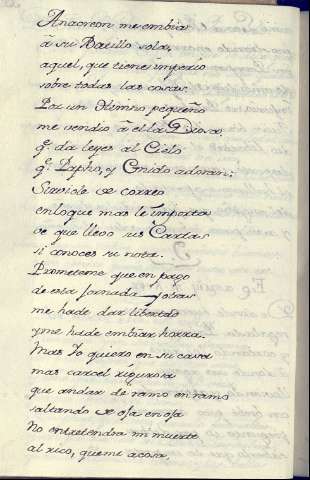 Anacreon me embia
â su Batillo sola,
aquel, que tiene imperio
sobre todas las cosas.
Por un Himno pequeño
me vendio â ella Diosa,
q.e da leyes al Cielo
q.e Papho, y Gnido adoran:
Sirviole de correo
en lo que mas le importa
ve que llevo sus Cartas
si conoces su nota.
Prometeme que en pago
de esta Jornada y otras
me ha de dar libertad
y me ha de embiar horra.
Mas Yo quiero en su casa
mas carcel rigurosa
que andar de ramo en ramo
saltando de oja en oja
No entretendra mi muerte
al risco, que me acosa,